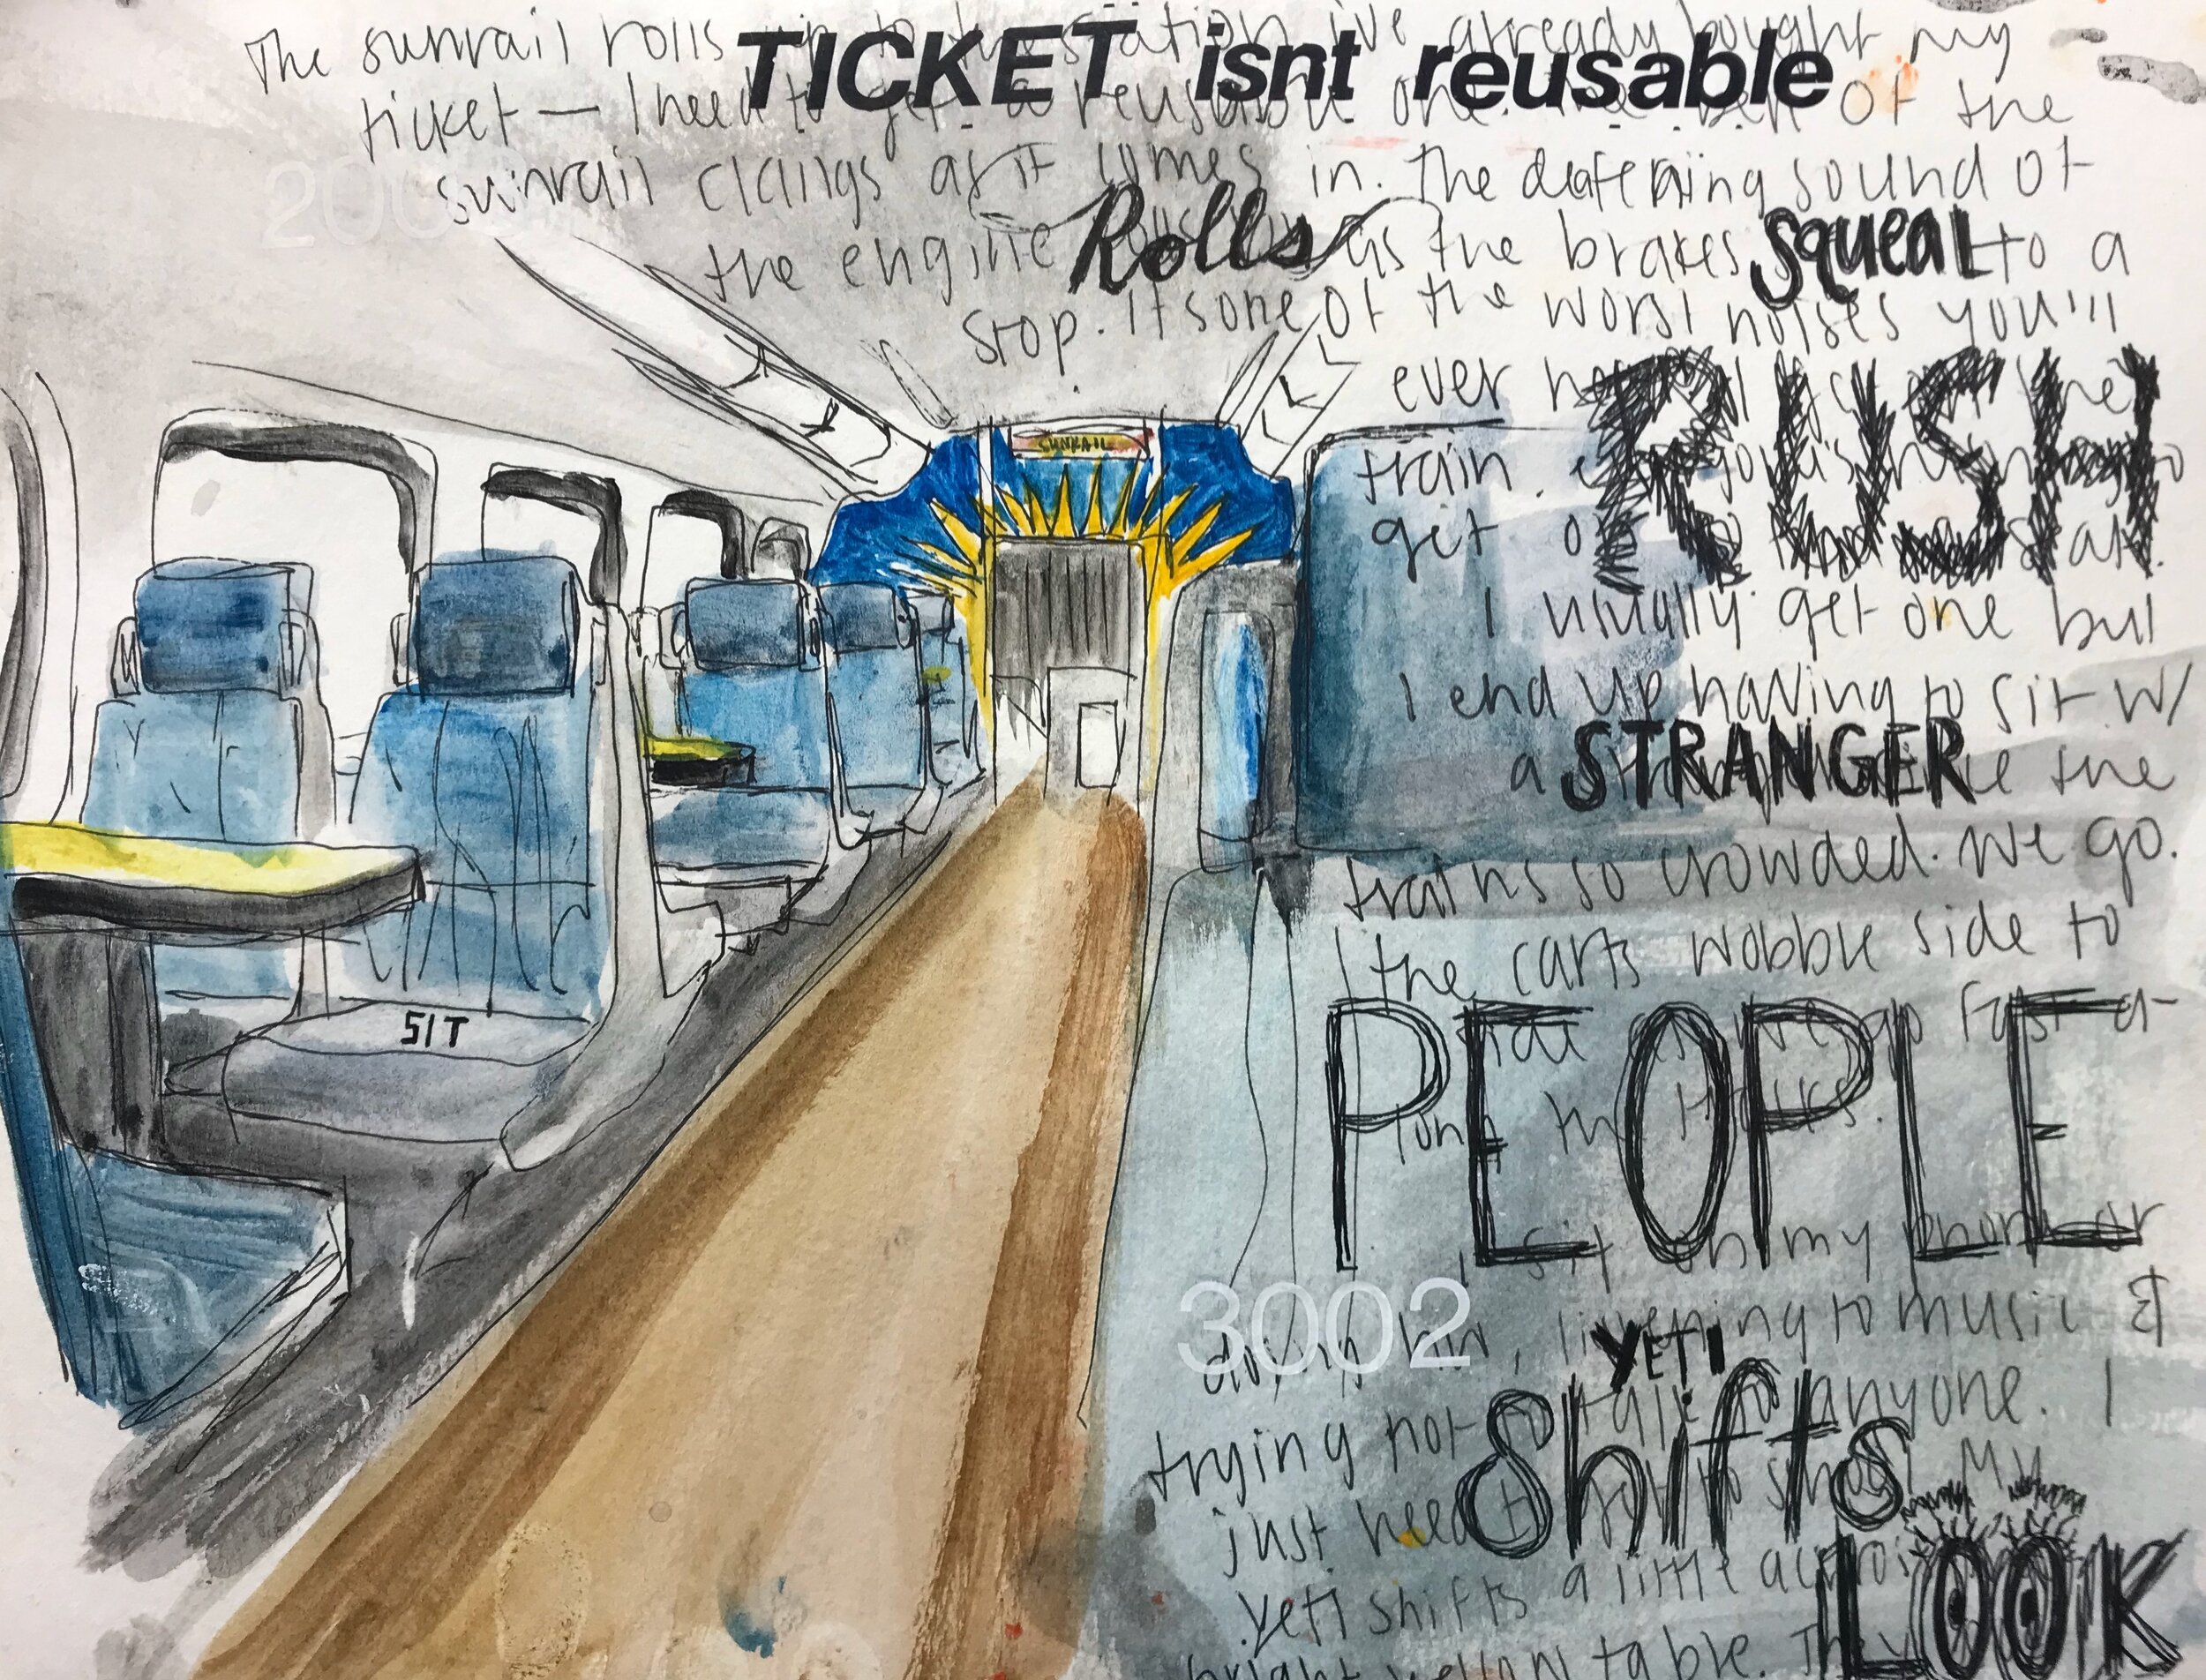 TICKET isnt reusable
The sunrail rolls up to the station ive already bought my
ticket — I need to get a reusable one. The bell of the
200
sunrail clangs as it comes in. The deafening sound of
the engine Rolls as the brakes squeal to a
stop. Its one of the worst noises you'll
ever
RUSH
train.
get
I usually get one but
I end up having to sit w/
a STRANGER the
train is so crowded. We go.
the carts wobble side to
go fast a-
PEOPLE
long
sit on my phone or
3002
listening to music &
YETI
trying not to talk to anyone. I
Shifts
just need to My
yeti shifts a little across
LOOK
bright yellow table. They
SUNRAIL
SIT